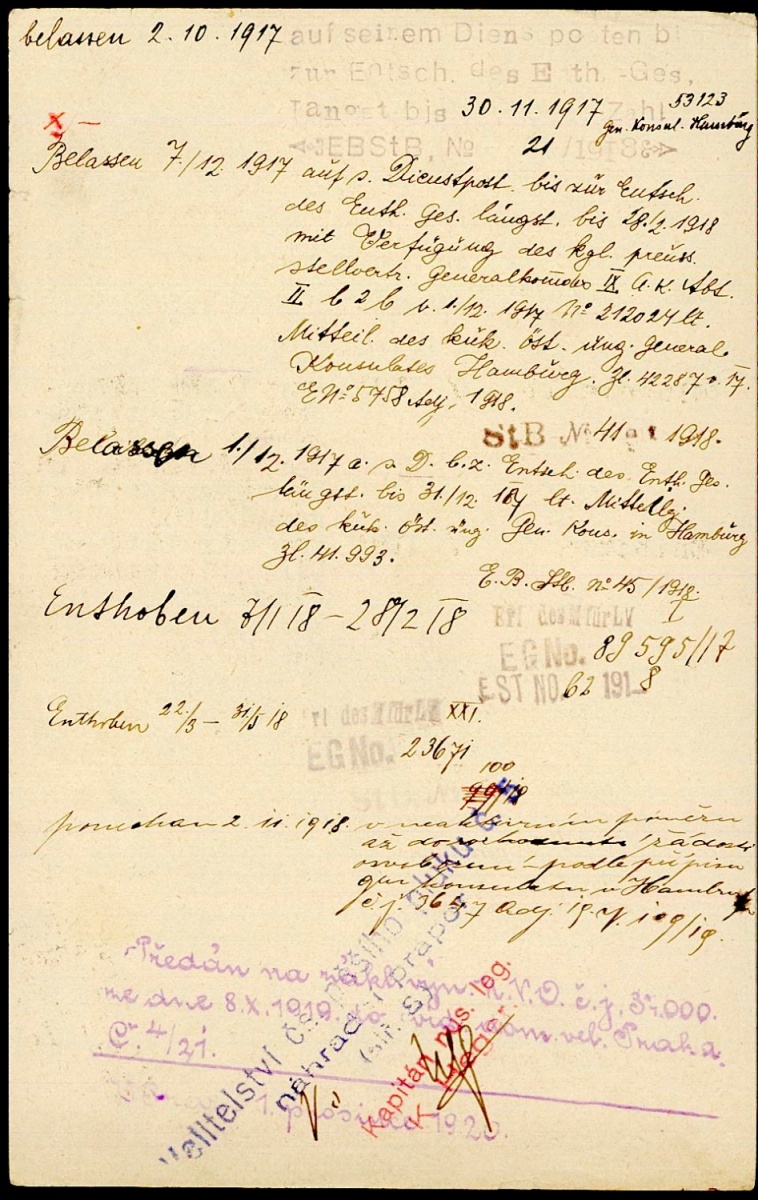 belassen 2.10.1917 auf seinem Diens posten b
zur Entsch. des Enth.-Ges,
längst. bis 30.11.1917 Zahl 53123
Gen. Konsul. Hamburg
EBStB, No 21 /1918
x –
Belassen 7./12. 1917 auf s. Dienstpost. bis zur Entsch.
des Enth. Ges. längst. bis 28./2. 1918
mit Verfügung des kgl. preuss.
stellvertr. Generalkomdos IX A.K. Abt.
II b 2 b v. 1./12. 1917 No 212024 lt.
Mitteil. des kuk. öst. ung. General
Konsulates Hamburg. Zl. 42287 v. 17.
E No 5758 Adj. 1918.
StB No 41 1918.
Belassen 1./12. 1917 a. s D. b. z. Entsch. des Enth. Ges.
längst. bis 31./12. 17 lt. Mitteilg.
des kuk. öst. ung. Gen. Kons. in Hamburg
Zl. 41.993.
E.B. Stb. No 45/1918.
Enthoben 7/I 18 – 28/2 18
Erl des M für LV
EG No. 89595/17
EST NO. 62 191 8
Enthoben 22./3 – 31/5 18 XXI.
Erl des M für LV
EG No. 23671
100
99/18
ponechán 2. 11. 1918. v neaktivním poměru
až do rozhodnutí žádosti
osvobození podle přípisu
gen. konsulatu v Hamburku
č.j. 3647 Adj. 19
Předán na zákl. výn. M.N.O. č.j. 34.000.
ze dne 8.X.1919. do
vel. Praha.
Čs. 4/21.
Velitelství čs. pěšího pluku č.
náhradní prapor
Kapitán rus. leg.
1. prosince 1920.